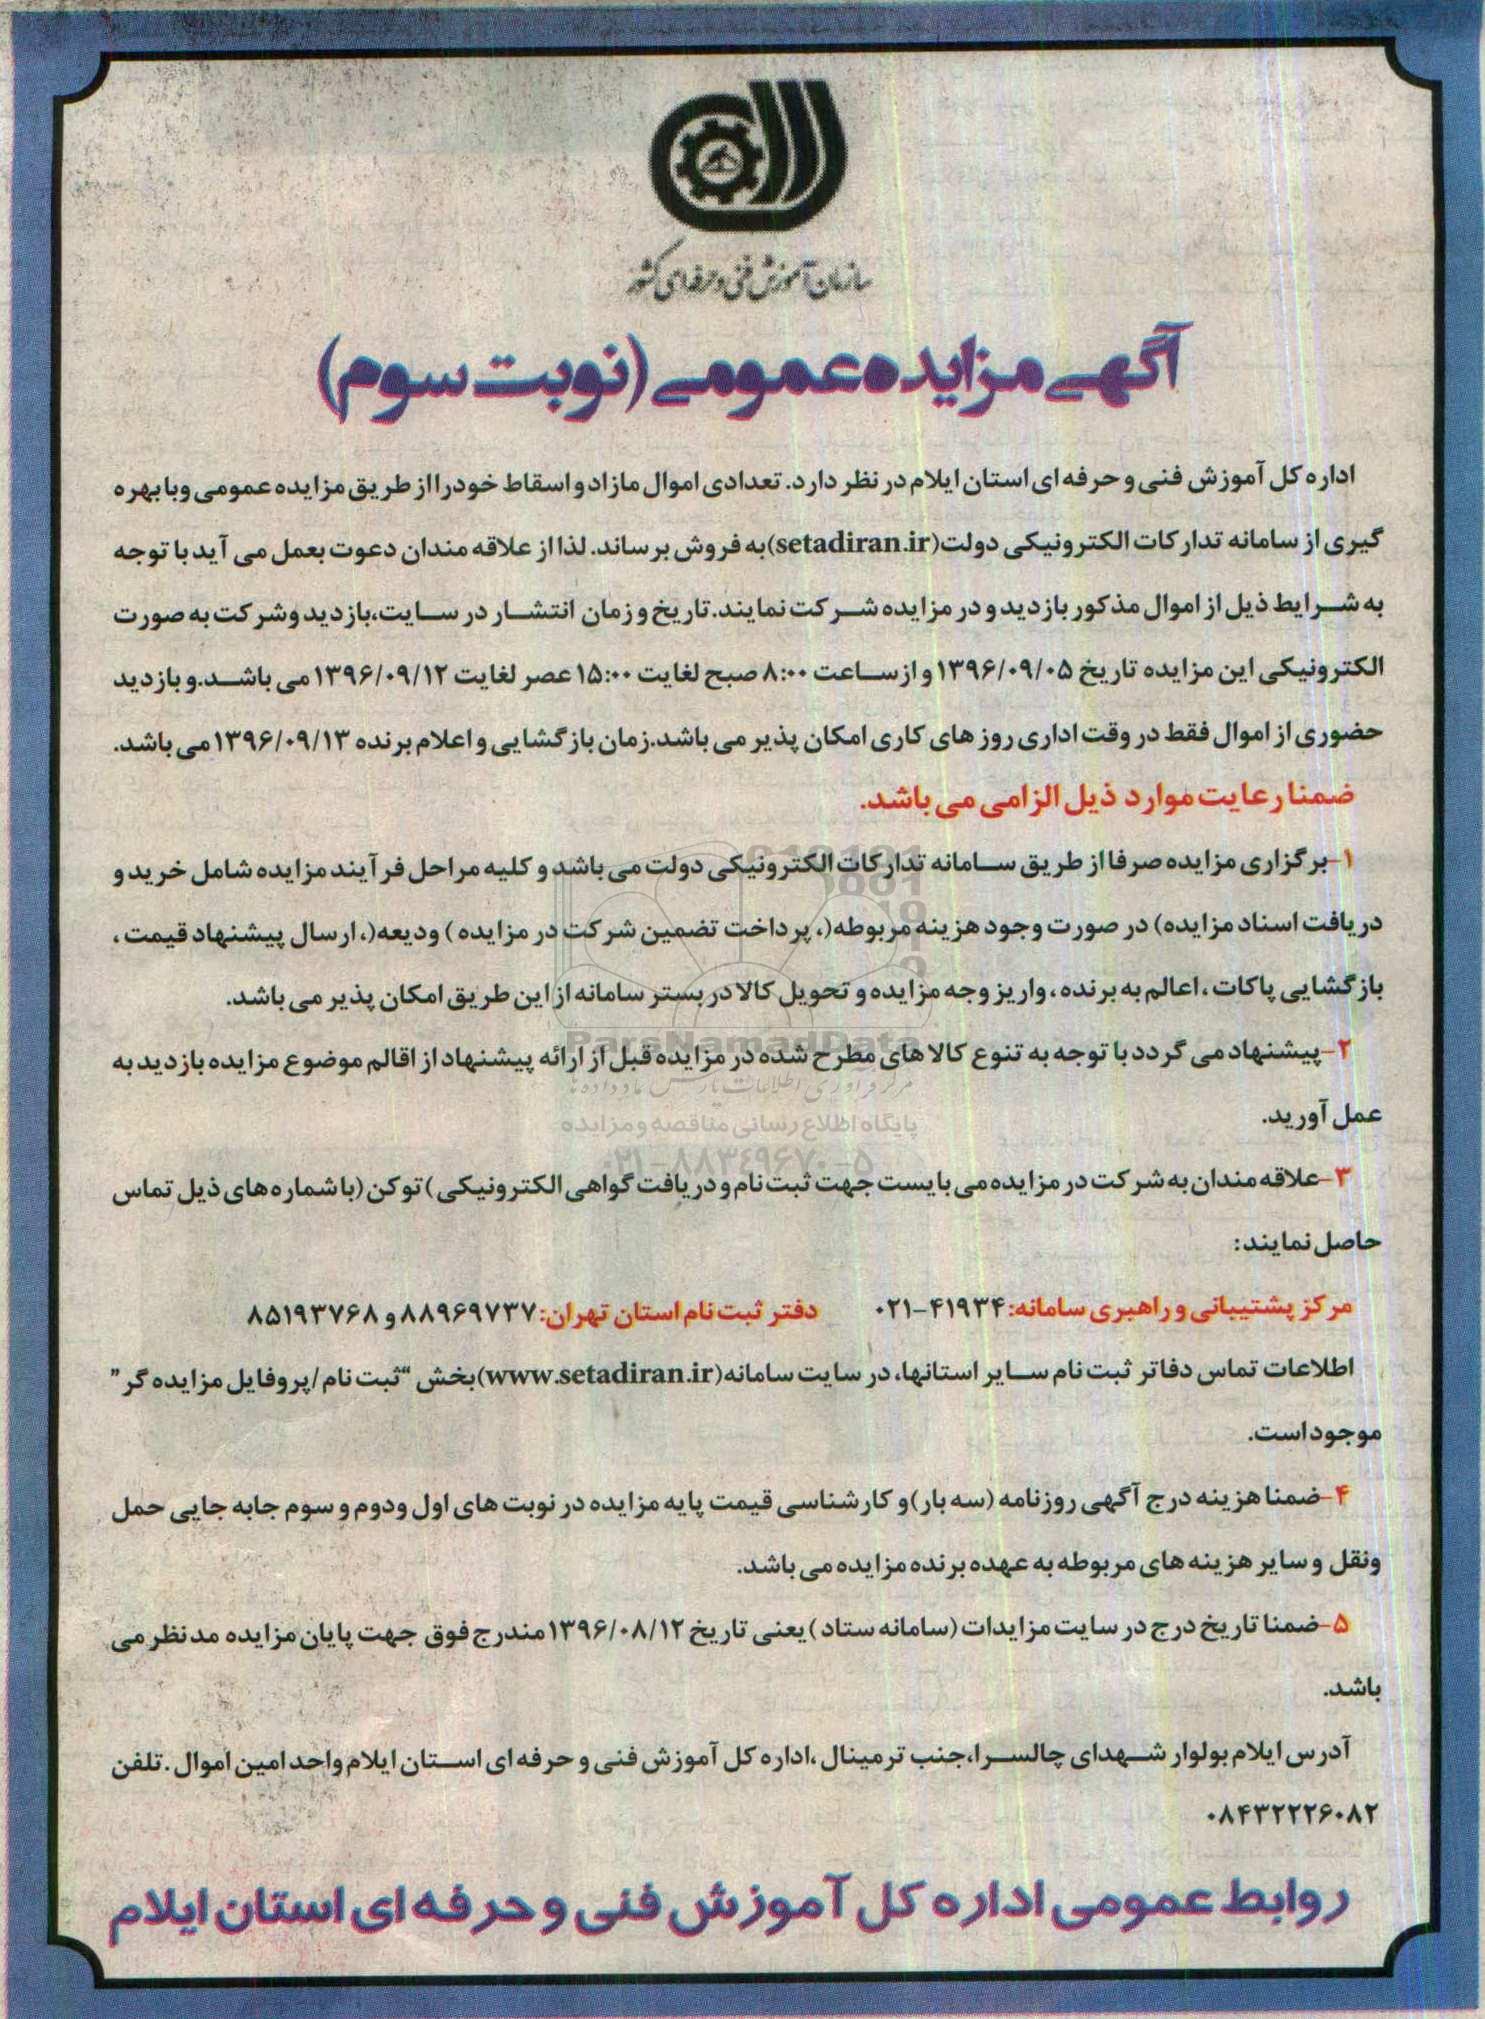 سازمان آموزش فنی و حرفه‌ای کشور
آگهی مزایده عمومی (نوبت سوم)
اداره کل آموزش فنی و حرفه ای استان ایلام در نظر دارد. تعدادی اموال مازاد و اسقاط خود را از طریق مزایده عمومی و با بهره
گیری از سامانه تدارکات الکترونیکی دولت (setadiran.ir) به فروش برساند. لذا از علاقه مندان دعوت بعمل می آید با توجه
به شرایط ذیل از اموال مذکور بازدید و در مزایده شرکت نمایند. تاریخ و زمان انتشار در سایت، بازدید و شرکت به صورت
الکترونیکی این مزایده تاریخ ۱۳۹۶/۰۹/۰۵ و از ساعت ۸:۰۰ صبح لغایت ۱۵:۰۰ عصر لغایت ۱۳۹۶/۰۹/۱۲ می باشد. و بازدید
حضوری از اموال فقط در وقت اداری روز های کاری امکان پذیر می باشد. زمان بازگشایی و اعلام برنده ۱۳۹۶/۰۹/۱۳ می باشد.
ضمنا رعایت موارد ذیل الزامی می باشد.
۱-برگزاری مزایده صرفا از طریق سامانه تدارکات الکترونیکی دولت می باشد و کلیه مراحل فرآیند مزایده شامل خرید و
دریافت اسناد مزایده) در صورت وجود هزینه مربوطه(، پرداخت تضمین شرکت در مزایده ) ودیعه(، ارسال پیشنهاد قیمت ،
بازگشایی پاکات ، اعالم به برنده ، واریز وجه مزایده و تحویل کالا در بستر سامانه از این طریق امکان پذیر می باشد.
۲-پیشنهاد می گردد با توجه به تنوع کالا های مطرح شده در مزایده قبل از ارائه پیشنهاد از اقالم موضوع مزایده بازدید به
عمل آورید.
۳-علاقه مندان به شرکت در مزایده می بایست جهت ثبت نام و دریافت گواهی الکترونیکی ) توکن (با شماره های ذیل تماس
حاصل نمایند:
مرکز پشتیبانی و راهبری سامانه: ۴۱۹۳۴-۰۲۱ دفتر ثبت نام استان تهران: ۸۸۹۶۹۷۳۷ و ۸۵۱۹۳۷۶۸
اطلاعات تماس دفاتر ثبت نام سایر استانها، در سایت سامانه (www.setadiran.ir) بخش "ثبت نام / پروفایل مزایده گر"
موجود است.
۴-ضمنا هزینه درج آگهی روزنامه (سه بار) و کارشناسی قیمت پایه مزایده در نوبت های اول ودوم و سوم جابه جایی حمل
ونقل و سایر هزینه های مربوطه به عهده برنده مزایده می باشد.
۵-ضمنا تاریخ درج در سایت مزایدات (سامانه ستاد ) یعنی تاریخ ۱۳۹۶/۰۸/۱۲ مندرج فوق جهت پایان مزایده مد نظر می
باشد.
آدرس ایلام بولوار شهدای چالسرا، جنب ترمینال ، اداره کل آموزش فنی و حرفه ای استان ایلام واحد امین اموال . تلفن
۰۸۴۳۲۲۲۶۰۸۲
روابط عمومی اداره کل آموزش فنی و حرفه ای استان ایلام
ParsNamadData
پایگاه اطلاع رسانی مناقصه و مزایده
۰۲۱-۸۸۳۴۹۶۷۰-۵